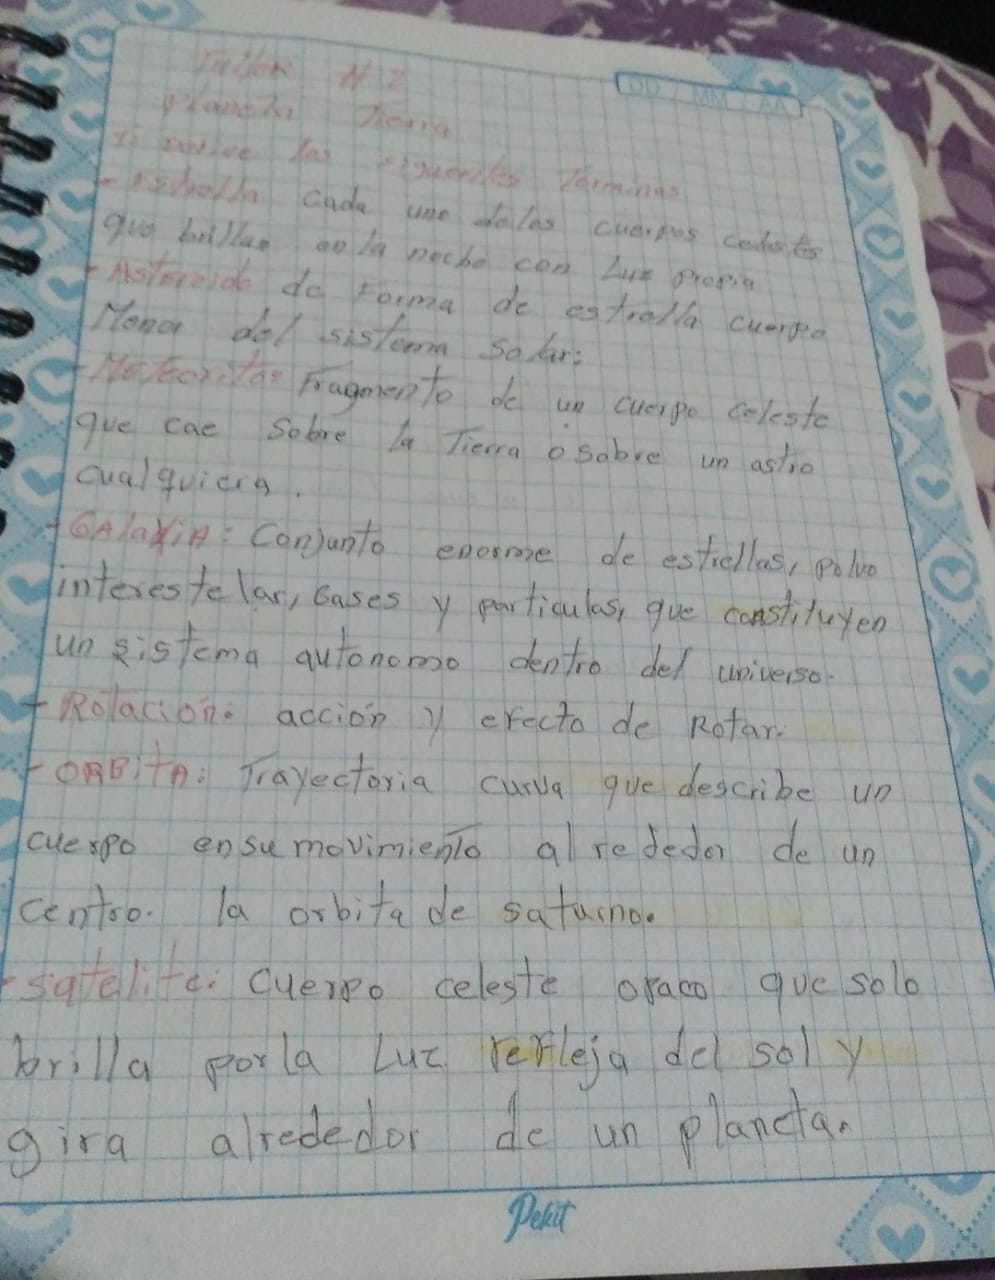 Taller N 2
DD / MM / AA
planeta Tierra
1: las siguientes Terminos
- Estrella cada uno delas cuerpos celestes
que brillan en la noche con Luz propia
- Asteroide de Forma de estrella cuerpo
Menor del sistema solar:
- Meteoritos Fragmento de un cuerpo celeste
que cae sobre la Tierra o sobre un astro
cualquiera.
- GAlaxiA: Conjunto enorme de estrellas, polvo
interestelar, Gases y particulas, que constituyen
un sistema autonomo dentro del universo.
- Rotación: acción y efecto de Rotar.
- ORBiTA: Trayectoria curva que describe un
cuerpo ensu movimiento al rededor de un
centro. la orbita de saturno.
- satelite: Cuerpo celeste opaco que solo
brilla porla Luz refleja del sol y
gira alrededor de un planeta.
Pekit